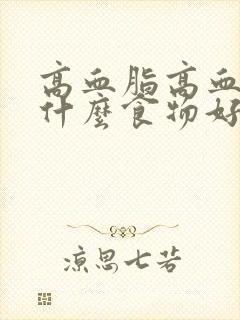 高血脂高血
什麼食物好
凉思七若